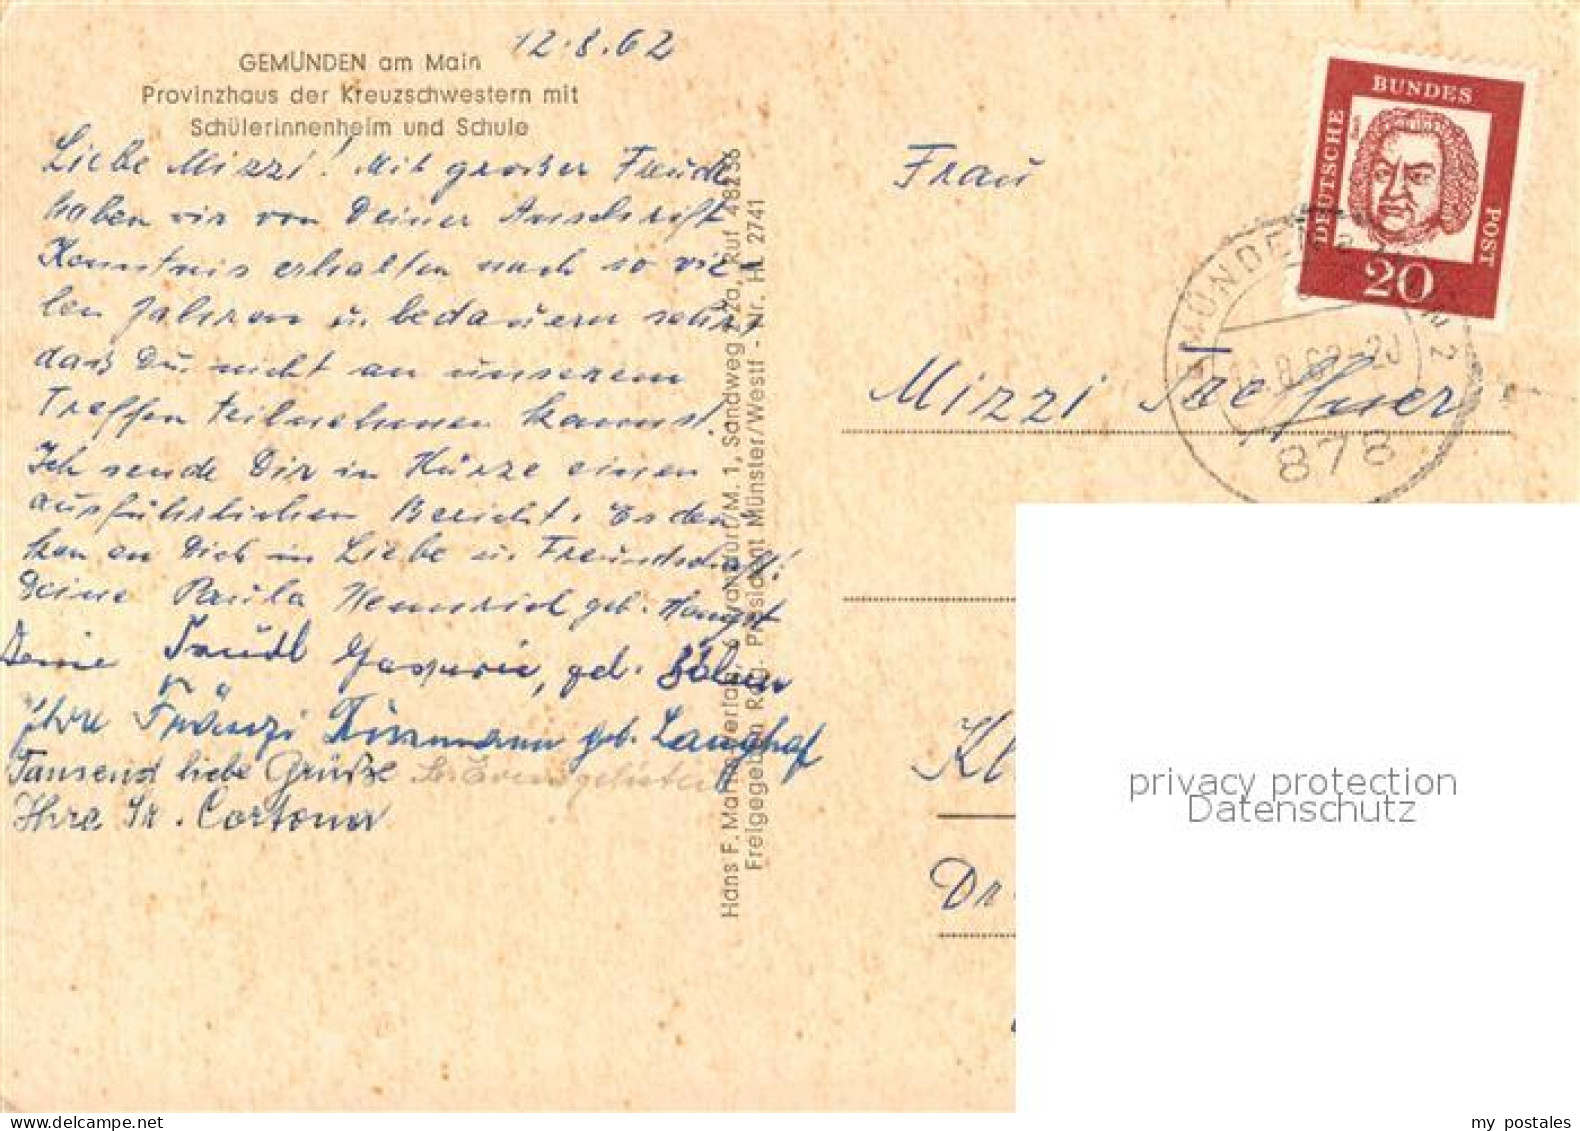 12.8.62
GEMÜNDEN am Main
Provinzhaus der Kreuzschwestern mit
Schülerinnenheim und Schule
Liebe Mizzi! Mit großer Freude
haben wir von Deiner Anschrift
Kenntnis erhalten nach so vie-
len Jahren u. bedauern sehr,
daß Du nicht an unserem
Treffen teilnehmen kannst.
Ich sende Dir in Kürze einen
ausführlichen Bericht. Es den
ken an Dich in Liebe u. Freundschaft!
Deine Paula geb.
Deine Traudl geb.
Ihre Fränzi geb. Langhof
Tausend liebe Grüße
Ihre Sr. Cortona
Hans F. Martin Verlag, 1, Sandweg Ruf 48236
Freigegeben Reg. Präsident Münster/Westf - Nr. H. 2741
DEUTSCHE
BUNDES
POST
Bach
20
GEMÜNDEN
2
878
Frau
Mizzi
Kl
Dr
privacy protection
Datenschutz
my postales